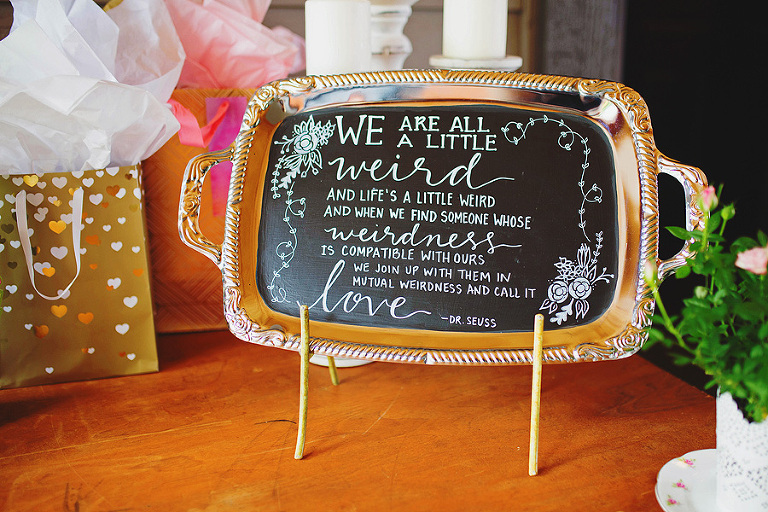 WE ARE ALL
A LITTLE
weird
AND LIFE'S A LITTLE WEIRD
AND WHEN WE FIND SOMEONE WHOSE
weirdness
IS COMPATIBLE WITH OURS
WE JOIN UP WITH THEM IN
MUTUAL WEIRDNESS AND CALL IT
love
-DR. SEUSS